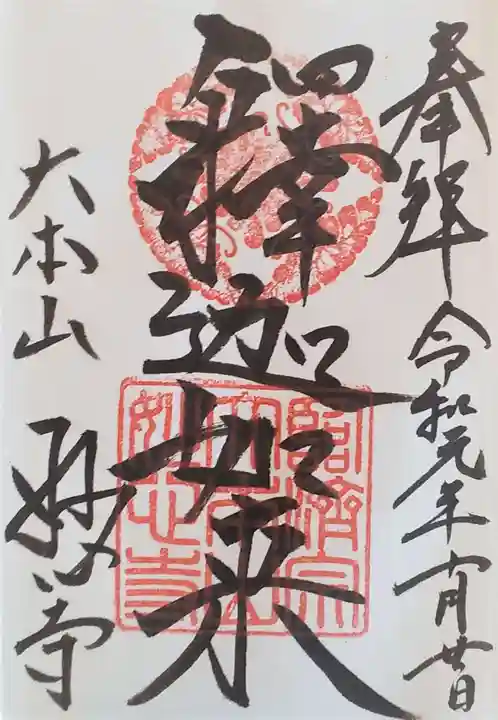 奉拝 令和元年十月廿日
釋迦如来
大本山 妙心寺
臨濟宗
大本山
妙心寺